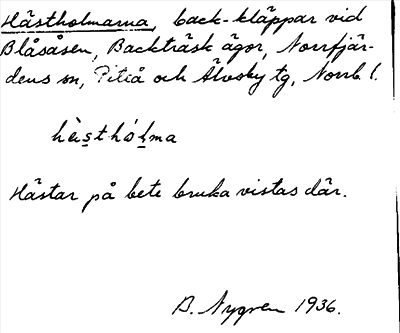 Hästholmarna, back-kläppar vid
Blåsåsen, Backträsk ägor, Norrfjär-
dens sn, Piteå och Älvsby tg, Norrb l.
hèsthólma
Hästar på bete bruka vistas där.
B. Nygren 1936.